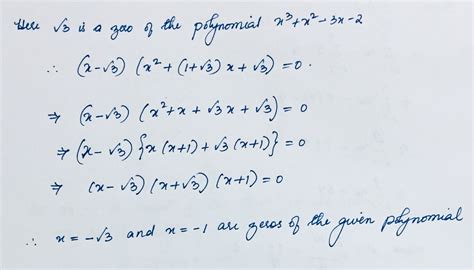 Here √3 is a zero of the polynomial x³+x²-3x-2
∴ (x-√3) (x²+(1+√3)x+√3)=0.
⇒ (x-√3) (x²+x+√3x+√3)=0
⇒ (x-√3) {x(x+1)+√3(x+1)}=0
⇒ (x-√3) (x+√3) (x+1)=0
∴ x=-√3 and x=-1 are zeros of the given polynomial